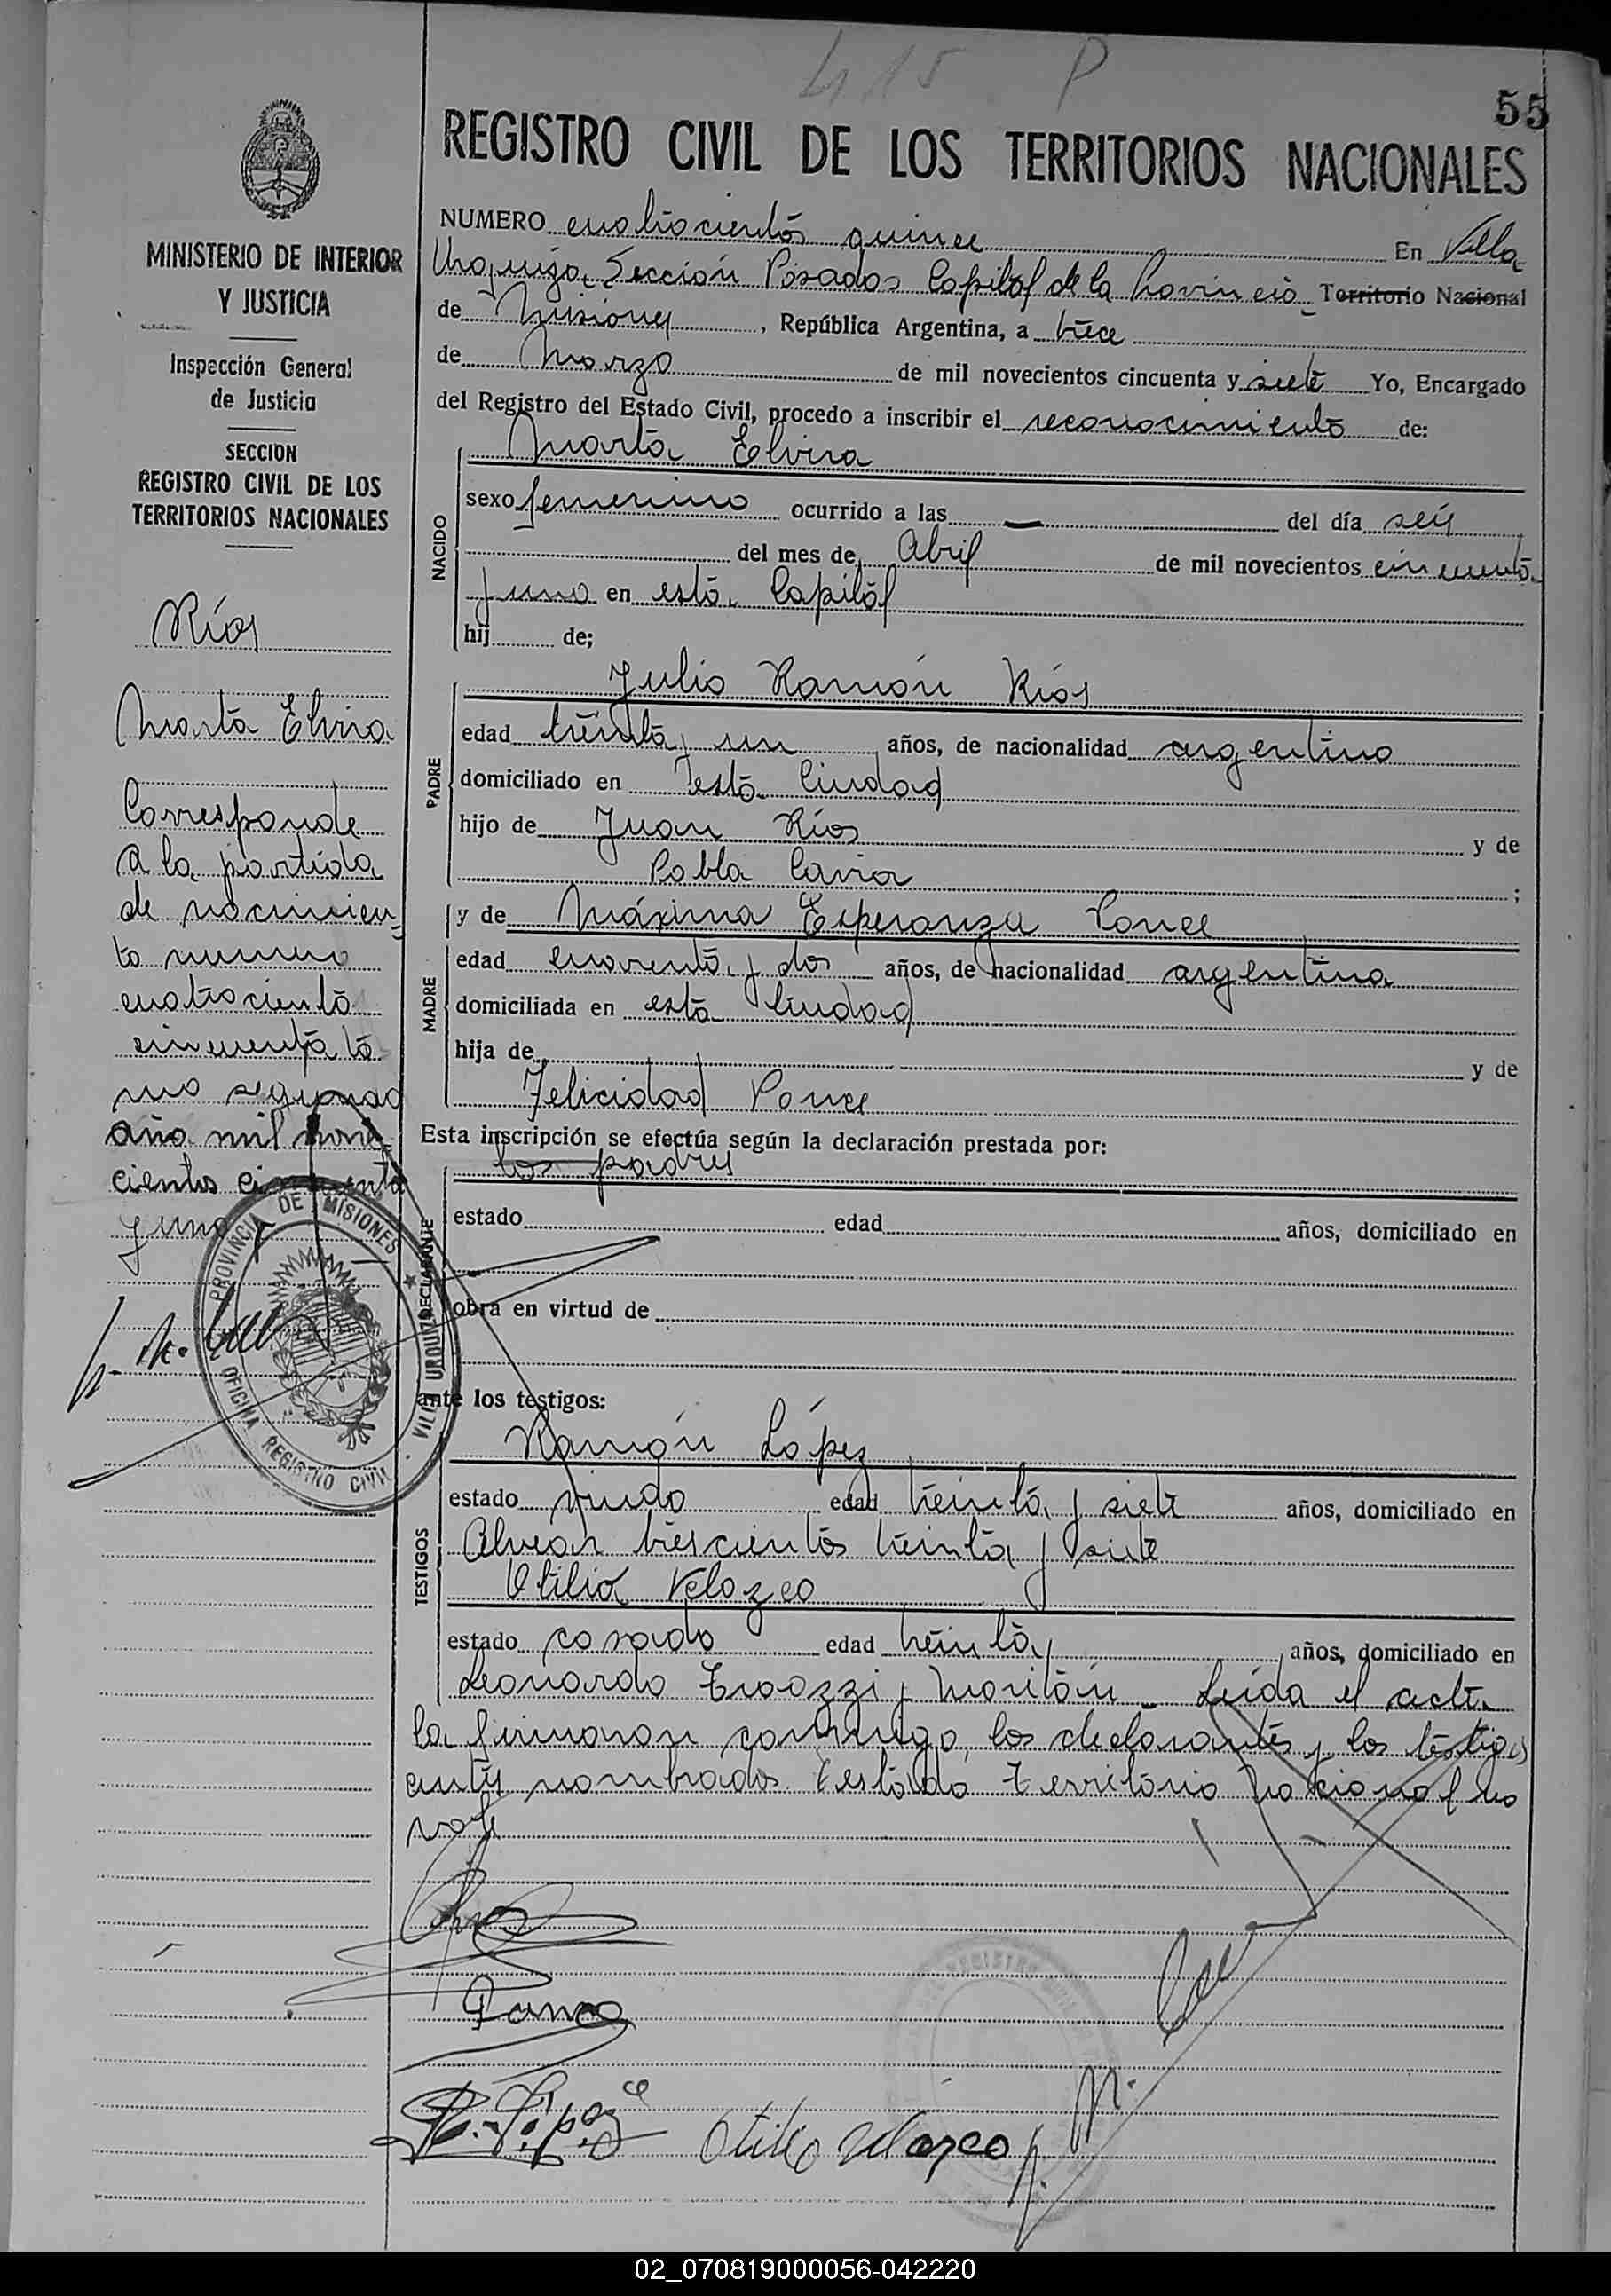 415 P
55
REGISTRO CIVIL DE LOS TERRITORIOS NACIONALES
MINISTERIO DE INTERIOR
Y JUSTICIA
Inspección General
de Justicia
SECCION
REGISTRO CIVIL DE LOS
TERRITORIOS NACIONALES
Ríos
Marta Elvira
Corresponde
a la partida
de nacimien
to numero
cuatrociento
cincuenta to
mo segundo
año mil nove
cientos cincuenta
y uno
PROVINCIA DE MISIONES
OFICINA REGISTRO CIVIL VILLA URQUIZA
NUMERO cuatrocientos quince En Villa
Urquiza, Sección Posadas Capital de la Provincia Territorio Nacional
de Misiones, República Argentina, a trece
de Marzo de mil novecientos cincuenta y siete Yo, Encargado
del Registro del Estado Civil, procedo a inscribir el reconocimiento de:
NACIDO
Marta Elvira
sexo femenino ocurrido a las — del día seis
del mes de Abril de mil novecientos cincuenta
y uno en esta Capital
hij de;
PADRE
Julio Ramón Ríos
edad treinta y un años, de nacionalidad argentino
domiciliado en esta Ciudad
hijo de Juan Ríos y de
;
MADRE
y de Máxima Esperanza Ponce
edad cuarenta y dos años, de nacionalidad argentina
domiciliada en esta Ciudad
hija de y de
Felicidad Ponce
Esta inscripción se efectúa según la declaración prestada por:
DECLARANTE
los padres
estado edad años, domiciliado en
obra en virtud de
ante los testigos:
TESTIGOS
Ramón López
estado viudo edad treinta y siete años, domiciliado en
Alvear trescientos treinta y siete
Otilio Velazco
estado casado edad treinta años, domiciliado en
Leonardo Troazzi y Maritán - Leída el acta
la firmaron conmigo, los declarantes y los testigos
antes nombrados Testado Territorio Nacional no
vale
Ponce
R. López
Otilio Velazco
02_070819000056-042220